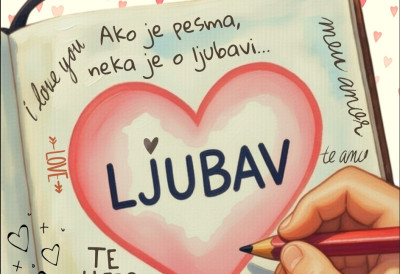 i love you
Ako je pesma,
neka je o ljubavi...
meu amor
LOVE
LJUBAV
te amo
TE